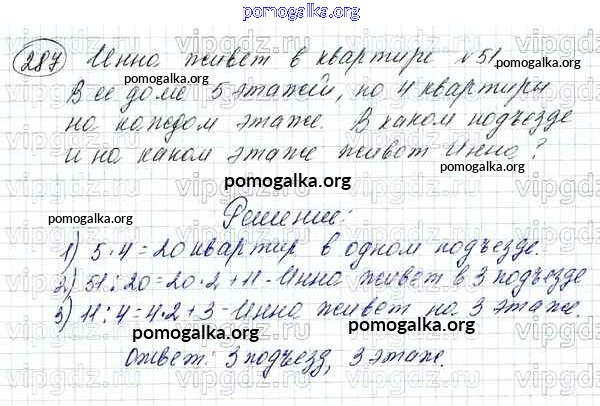 pomogalka.org
287 Инна живет в квартире №51.
pomogalka.org pomogalka.org
В ее доме 5 этажей, по 4 квартиры
на каждом этаже. В каком подъезде
и на каком этаже живет Инна?
pomogalka.org
Решение:
pomogalka.org pomogalka.org
1) 5·4=20 квартир в одном подъезде.
2) 51:20=20·2+11-Инна живет в 3 подъезде
3) 11:4=4·2+3-Инна живет на 3 этаже.
pomogalka.org pomogalka.org
Ответ: 3 подъезд, 3 этаж.
pomogalka.org